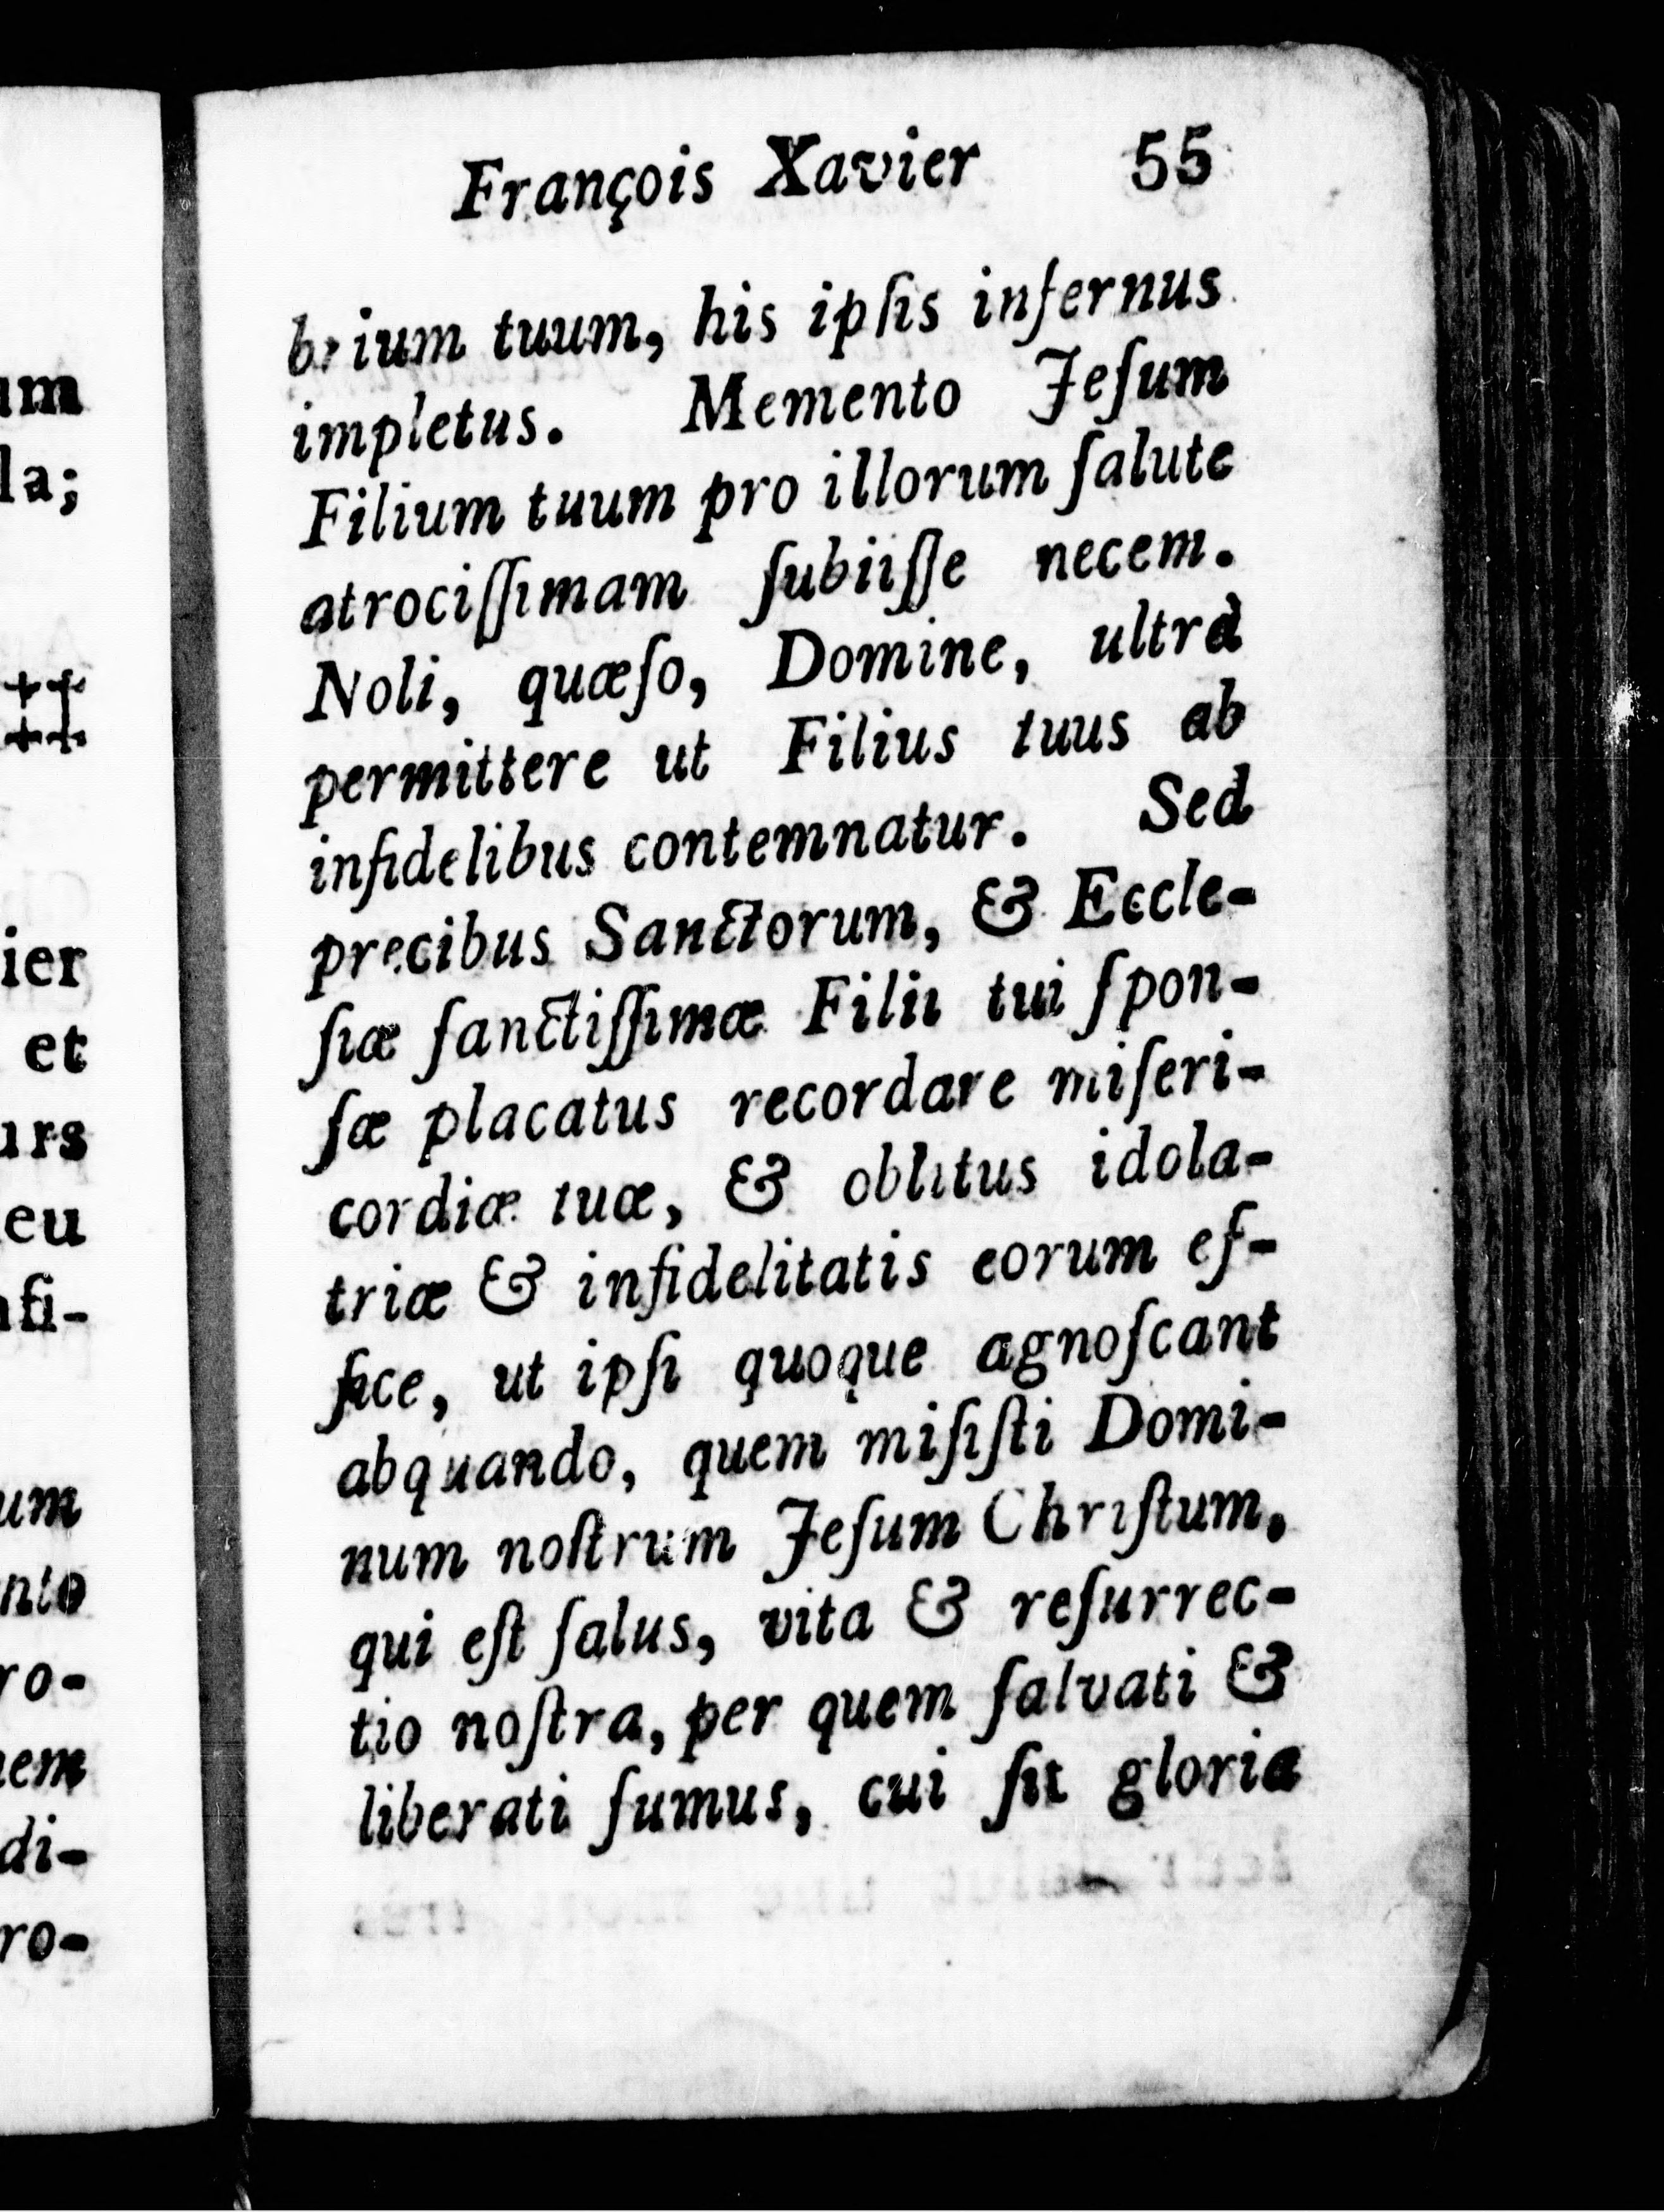 François Xavier 55
brium tuum, his ipſis infernus
impletus. Memento Jeſum
Filium tuum pro illorum ſalute
atrociſſimam ſubiiſſe necem.
Noli, quæſo, Domine, ultrà
permittere ut Filius tuus ab
infidelibus contemnatur. Sed
precibus Sanctorum, & Eccle-
ſiæ ſanctiſſimæ Filii tui ſpon-
ſæ placatus recordare miſeri-
cordiæ tuæ, & oblitus idola-
triæ & infidelitatis eorum ef-
fice, ut ipſi quoque agnoſcant
abquando, quem miſiſti Domi-
num noſtrum Jeſum Chriſtum,
qui eſt ſalus, vita & reſurrec-
tio noſtra, per quem ſalvati &
liberati ſumus, cui ſit gloria
um
la;
ier
et
urs
eu
fi-
um
nto
ro-
em
di-
ro-